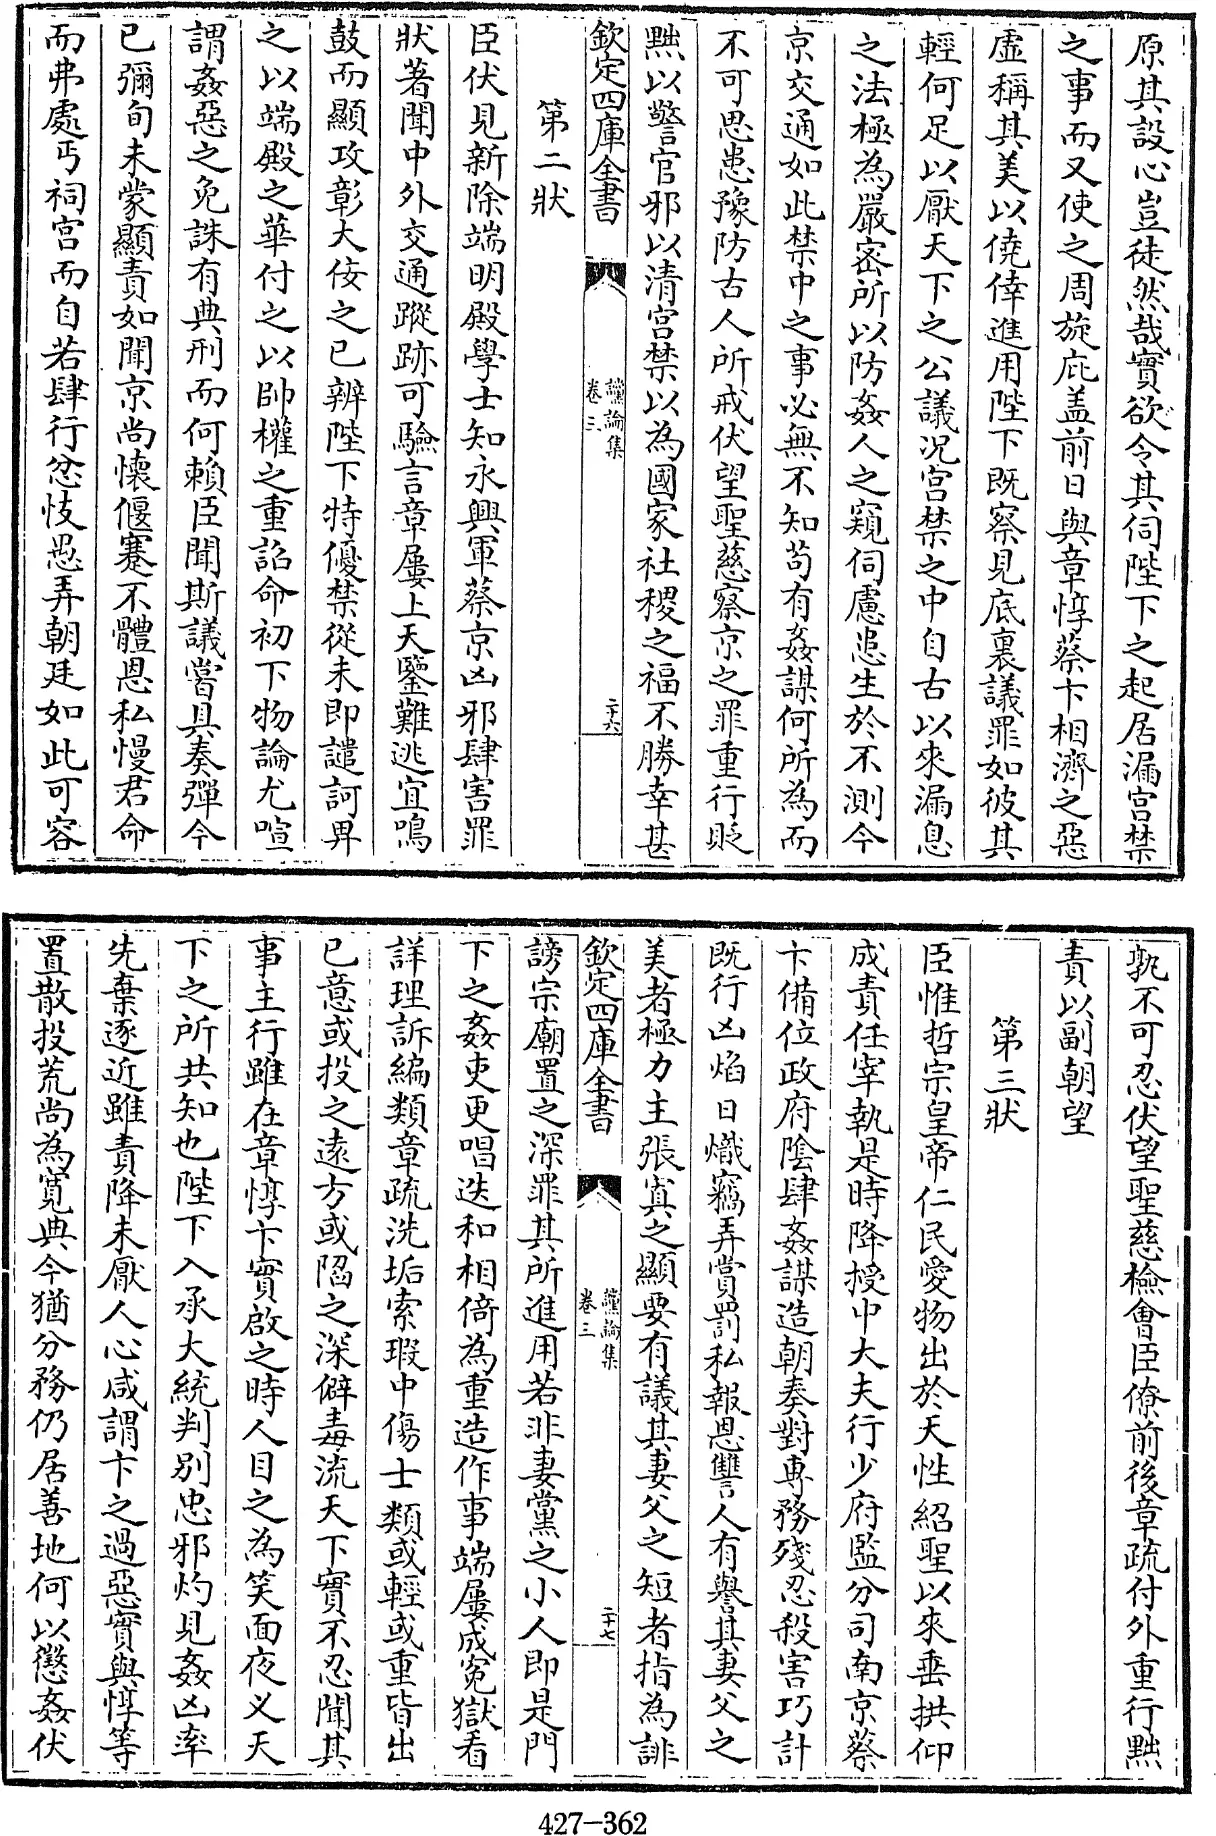 原其設心豈徒然哉實欲令其伺陛下之起居漏宫禁
之事而又使之周旋庇盖前日與章惇蔡卞相濟之惡
虚稱其美以僥倖進用陛下既察見底裏議罪如彼其
輕何足以厭天下之公議况宫禁之中自古以來漏息
之法極為嚴密所以防姦人之窺伺慮患生於不測今
京交通如此禁中之事必無不知苟有姦謀何所為而
不可思患豫防古人所戒伏望聖慈察京之罪重行貶
黜以警官邪以清宫禁以為國家社稷之福不勝幸甚
欽定四庫全書
讜論集
卷三
二十六
第二狀
臣伏見新除端明殿學士知永興軍蔡京凶邪肆害罪
狀著聞中外交通蹤跡可驗言章屢上天鑒難逃宜鳴
鼓而顯攻彰大佞之已辨陛下特優禁從未即譴訶畀
之以端殿之華付之以帥權之重詔命初下物論尤喧
謂姦惡之免誅有典刑而何賴臣聞斯議嘗具奏彈今
已彌旬未蒙顯責如聞京尚懷偃蹇不體恩私慢君命
而弗處丐祠宫而自若肆行忿忮愚弄朝廷如此可容
孰不可忍伏望聖慈檢會臣僚前後章疏付外重行黜
責以副朝望
第三狀
臣惟哲宗皇帝仁民愛物出於天性紹聖以來垂拱仰
成責任宰執是時降授中大夫行少府監分司南京蔡
卞備位政府陰肆姦謀造朝奏對專務殘忍殺害巧計
既行凶焰日熾竊弄賞罰私報恩讐人有譽其妻父之
美者極力主張寘之顯要有議其妻父之短者指為誹
欽定四庫全書
讜論集
卷三
二十七
謗宗廟置之深罪其所進用若非妻黨之小人即是門
下之姦吏更唱迭和相倚為重造作事端屢成寃獄看
詳理訴編類章疏洗垢索瑕中傷士類或輕或重皆出
已意或投之遠方或陷之深僻毒流天下實不忍聞其
事主行雖在章惇卞實啟之時人目之為笑面夜义天
下之所共知也陛下入承大統判别忠邪灼見姦凶率
先棄逐近雖責降未厭人心咸謂卞之過惡實與惇等
置散投荒尚為寬典今猶分務仍居善地何以懲姦伏
427-362